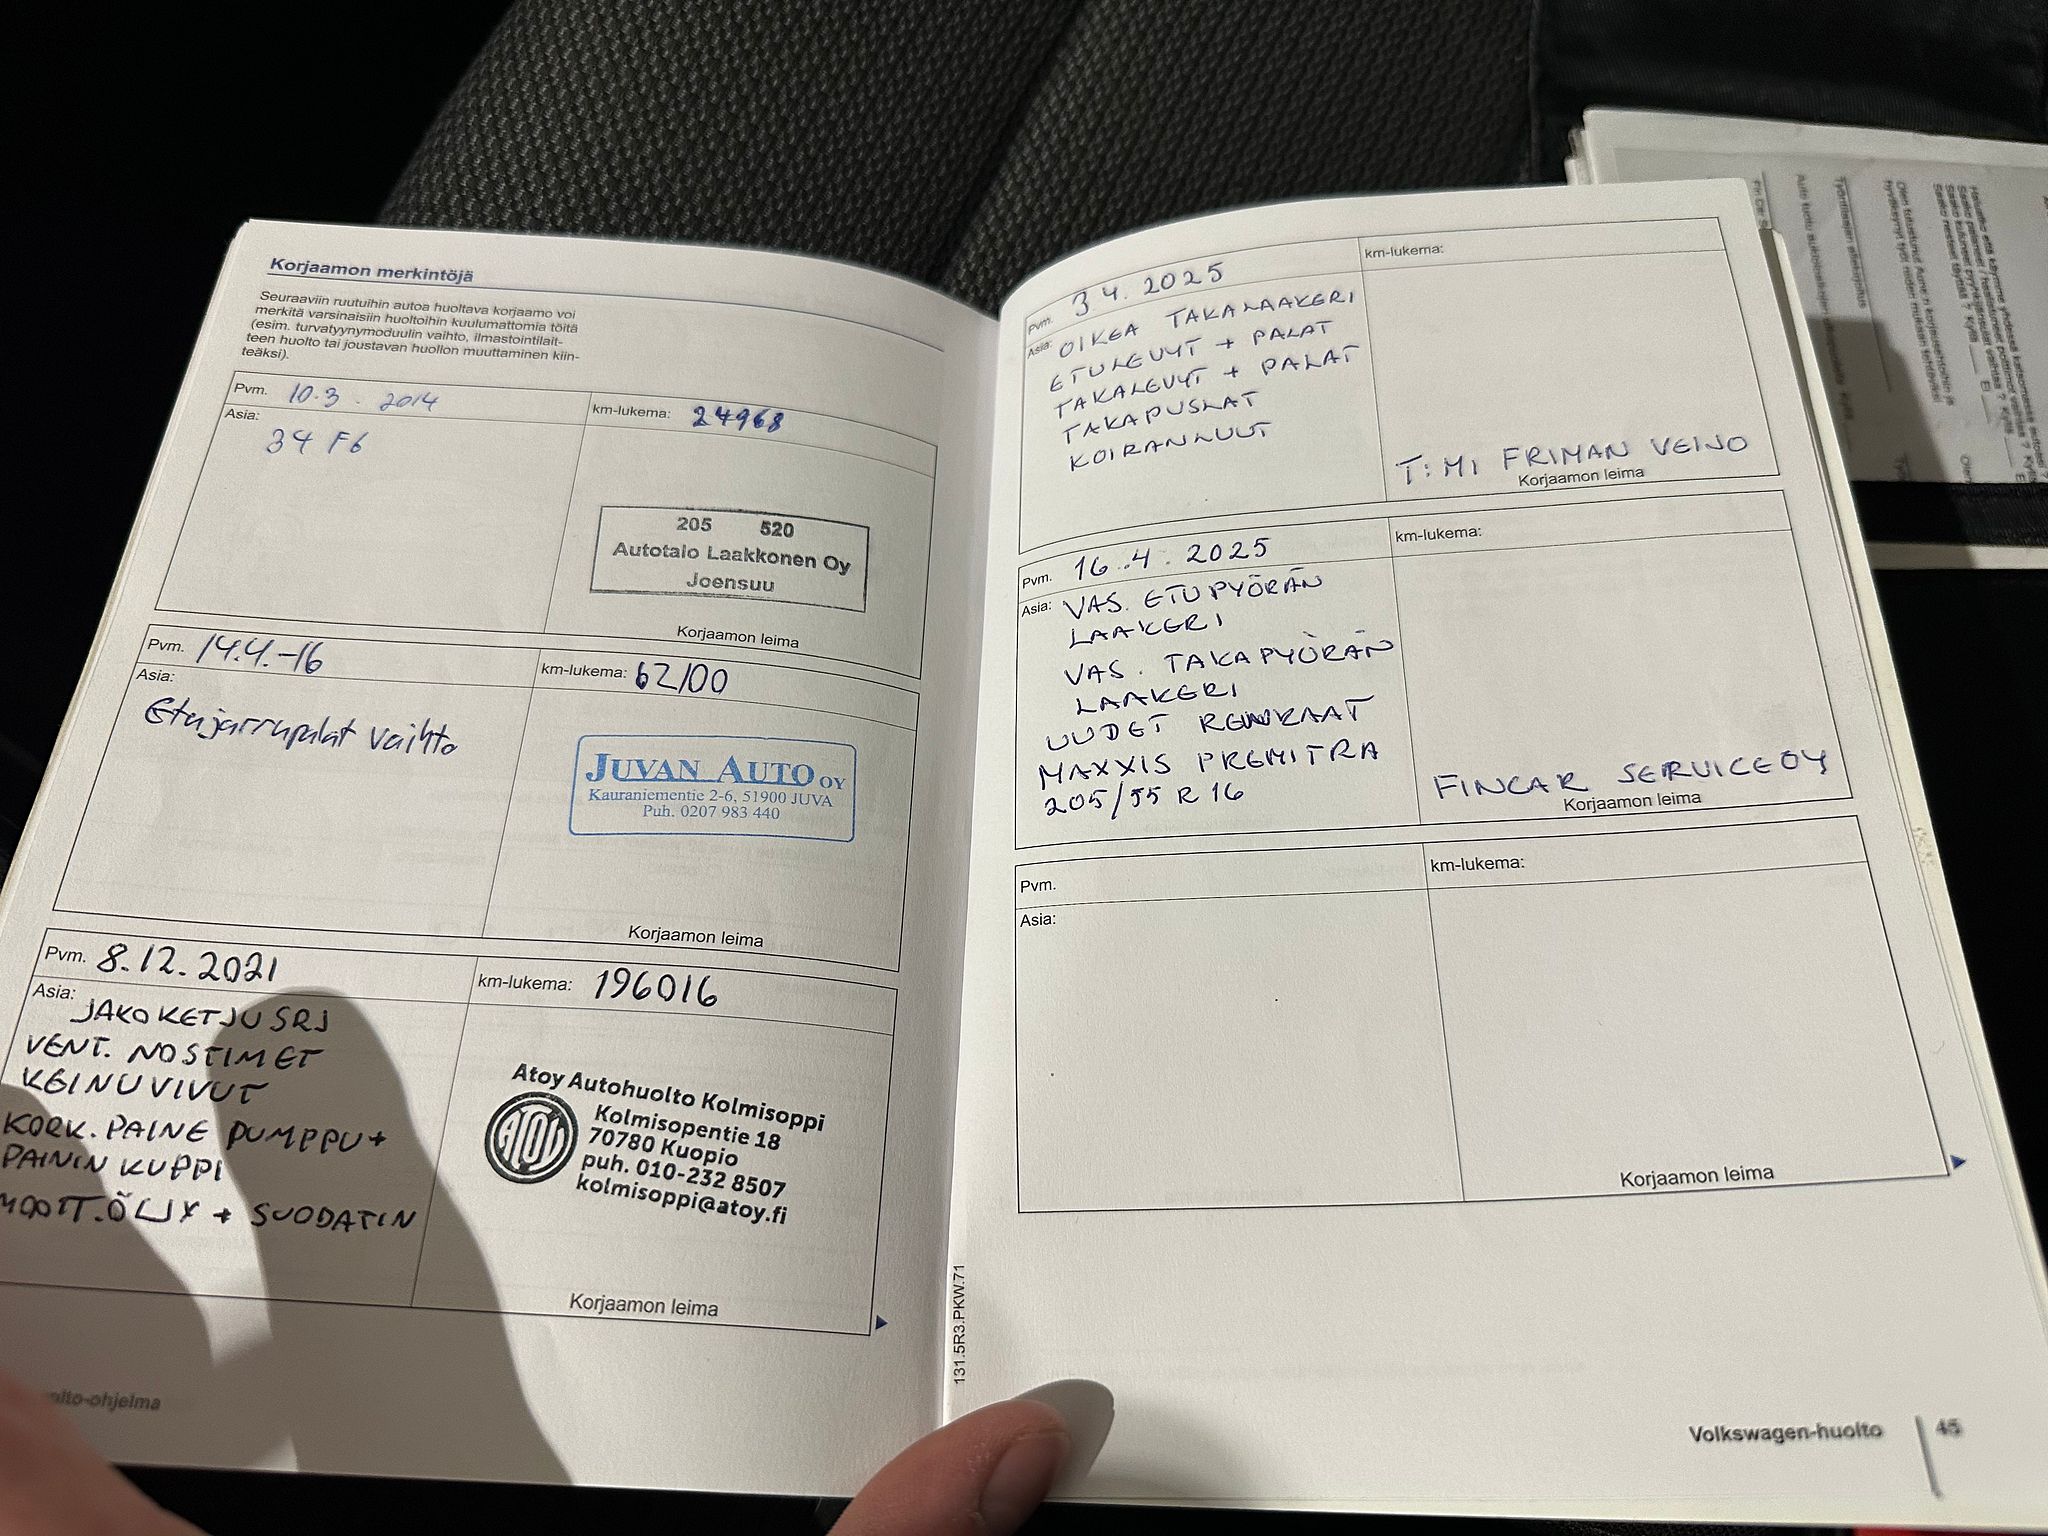 Korjaamon merkintöjä
Seuraaviin ruutuihin autoa huoltava korjaamo voi
merkitä varsinaisiin huoltoihin kuulumattomia töitä
(esim. turvatyynymoduulin vaihto, ilmastointilait-
teen huolto tai joustavan huollon muuttaminen kiin-
teäksi).
Pvm. 10.3. 2014
km-lukema: 24968
Asia:
34 F6
205 520
Autotalo Laakkonen Oy
Joensuu
Korjaamon leima
Pvm. 14.4.-16
km-lukema: 62100
Asia:
Etujarrupalat vaihto
JUVAN AUTO OY
Kauraniementie 2-6, 51900 JUVA
Puh. 0207 983 440
Korjaamon leima
Pvm. 8.12.2021
km-lukema: 196016
Asia:
JAKOKETJUSRJ
VENT. NOSTIMET
KEINUVIVUT
KORK. PAINE PUMPPU+
PAININ KUPPI
MOOTT.ÖLJY + SUODATIN
Atoy Autohuolto Kolmisoppi
ATOY
Kolmisopentie 18
70780 Kuopio
puh. 010-232 8507
kolmisoppi@atoy.fi
Korjaamon leima
olto-ohjelma
Pvm. 3.4.2025
km-lukema:
Asia: OIKEA TAKALAAKERI
ETULEVYT + PALAT
TAKALEVYT + PALAT
TAKAPUSLAT
KOIRANLUUT
T:MI FRIMAN VEIJO
Korjaamon leima
Pvm. 16.4.2025
km-lukema:
Asia: VAS. ETUPYÖRÄN
LAAKERI
VAS. TAKAPYÖRÄN
LAAKERI
UUDET RENKAAT
MAXXIS PREMITRA
205/55 R 16
FINCAR SERVICE OY
Korjaamon leima
Pvm.
km-lukema:
Asia:
Korjaamon leima
131.5R3.PKW.71
Volkswagen-huolto 45